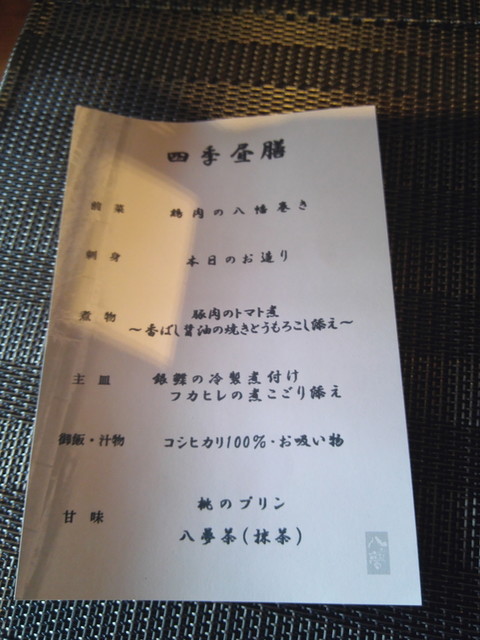 四季昼膳
前菜 鶏肉の八幡巻き
刺身 本日のお造り
煮物 豚肉のトマト煮
～香ばし醤油の焼きとうもろこし添え～
主皿 銀鱈の冷製煮付け
フカヒレの煮こごり添え
御飯・汁物 コシヒカリ100%・お吸い物
甘味 桃のプリン
八夢茶(抹茶)
八夢